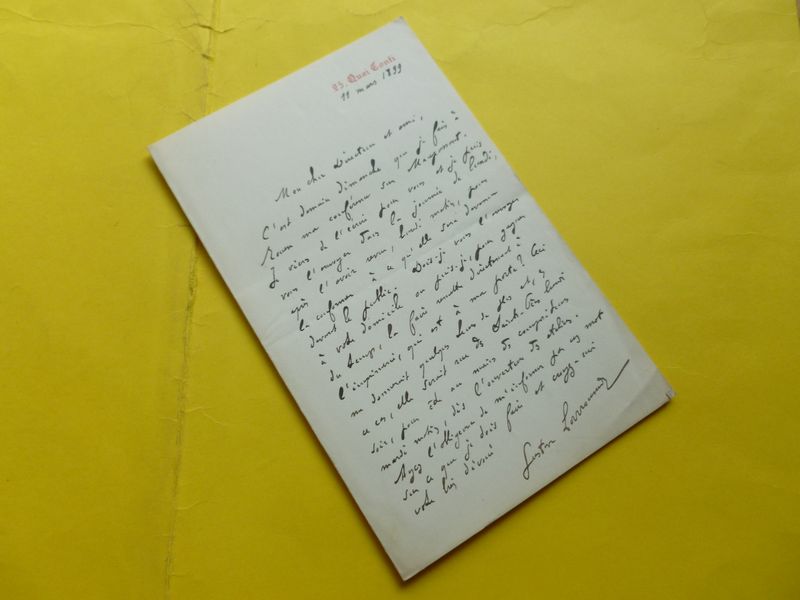 23, Quai Conti
11 mars 1899
Mon cher Directeur et ami,
C'est demain dimanche que je fais à
Rouen ma conférence sur Maupassant.
Je viens de l'écrire pour vous et je puis
vous l'envoyer dans la journée de lundi,
après l'avoir revu, lundi matin, pour
la conformer à ce qu'elle sera devenue
devant le public. Dois-je vous l'envoyer
à votre domicile ou puis-je, pour gagner
du temps, la faire remettre directement à
l'imprimerie, qui est à ma porte? Ceci
me donnerait quelques heures de plus et,
ce cas, elle serait rue des Saints-Pères lundi
soir, pour être au mains des compositeurs
mardi matin, dès l'ouverture des ateliers.
Ayez l'obligeance de m'informer par un mot
sur ce que je dois faire et croyez-moi
votre bien dévoué
Gustave Larroumet